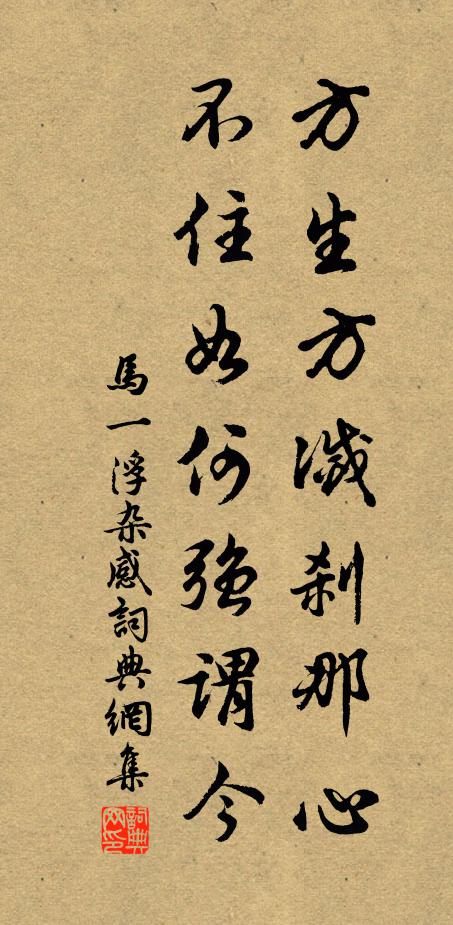 方生方滅刹那心
不住如何強謂今
馬一浮杂感詞典網集
詞典网印